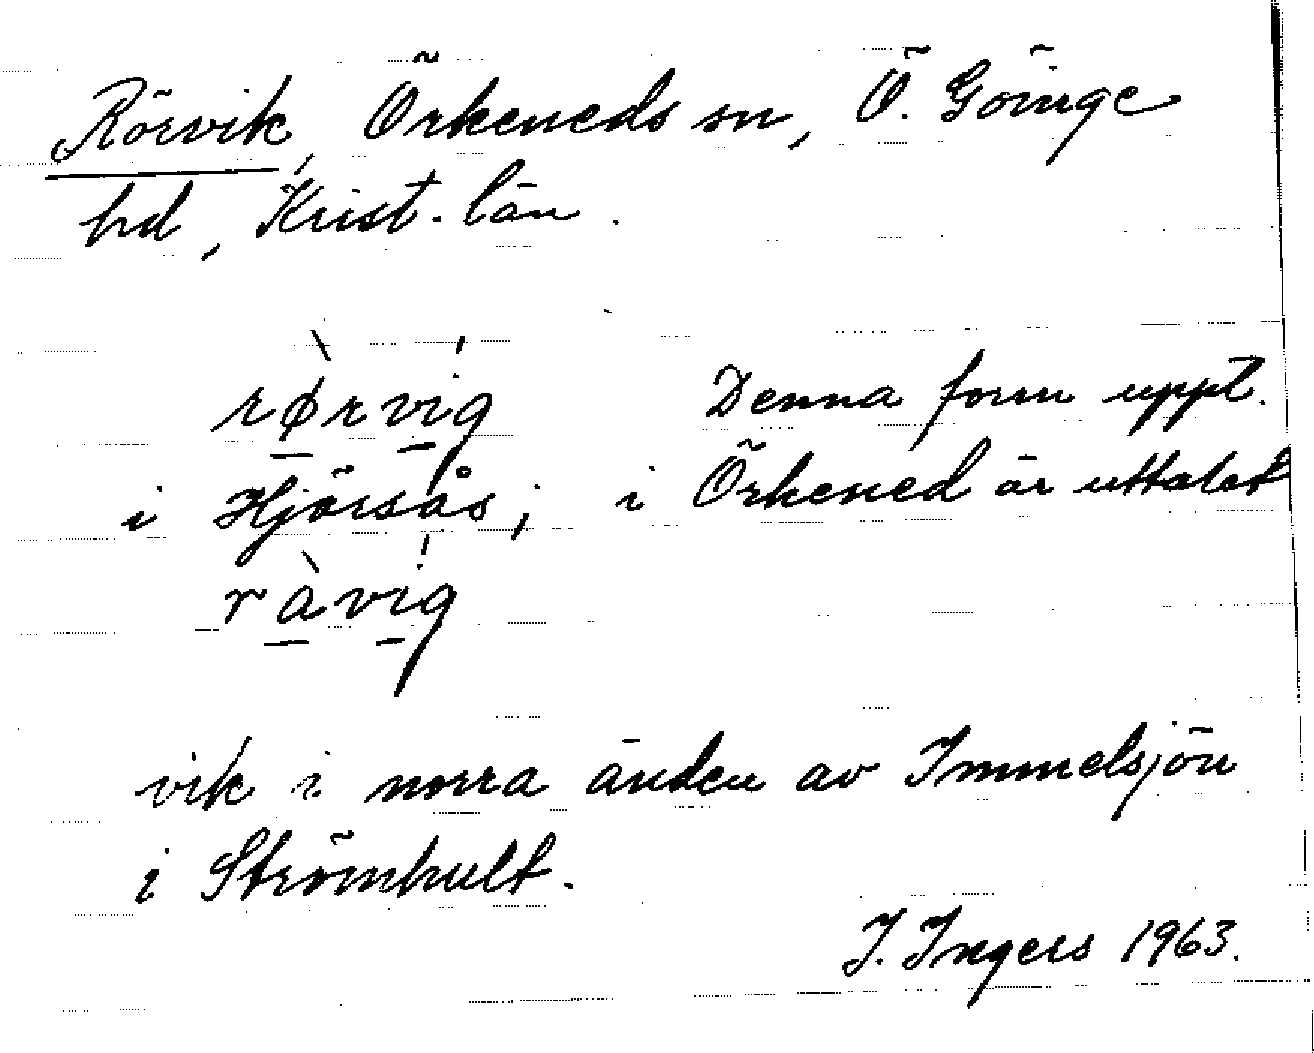 Rörvik, Örkeneds sn, Ö. Göinge
hd, Krist. län.
rø̀rvíg Denna form uppt.
i Hjärsås; i Örkened är uttalet
ràvíg
vik i norra änden av Immelsjön
i Strömhult.
I. Ingers 1963.